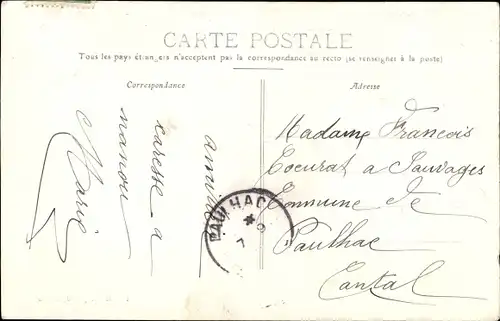 CARTE POSTALE
Tous les pays étrangers n'acceptent pas la correspondance au recto (se renseigner à la poste)
Correspondance
Adresse
caresse a
nanou
Marie
PAULHAC
7 9
Madame Francois
Coeurat a Sauvages
Commune de
Paulhac
Cantal